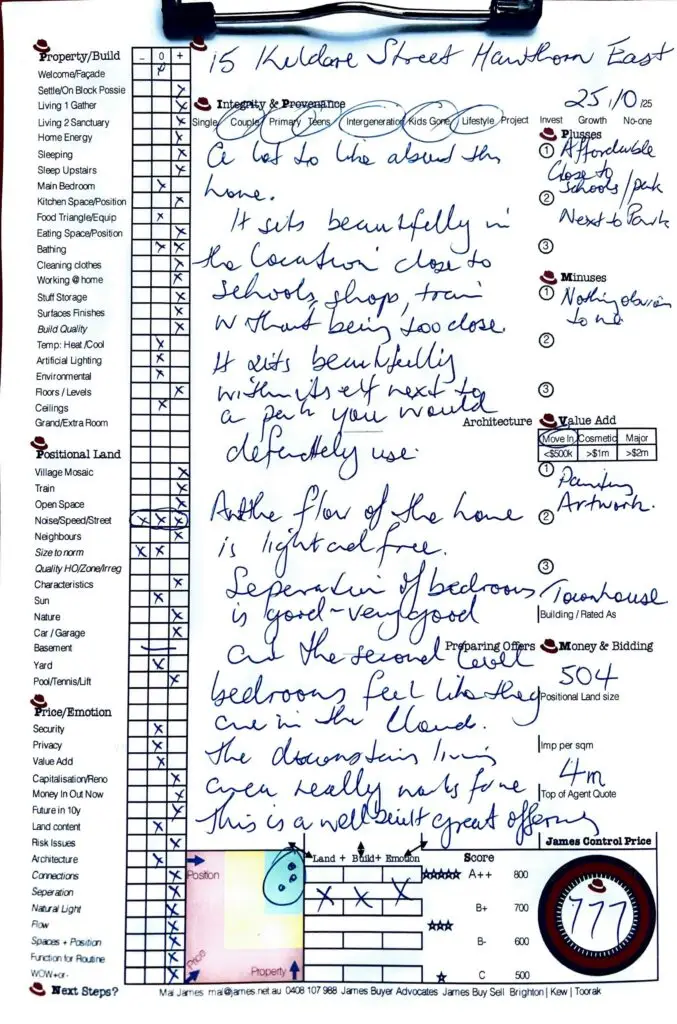 15 Kildare Street Hawthorn East
Property/Build - 0 +
Welcome/Façade
Settle/On Block Possie
Living 1 Gather
Living 2 Sanctuary
Home Energy
Sleeping
Sleep Upstairs
Main Bedroom
Kitchen Space/Position
Food Triangle/Equip
Eating Space/Position
Bathing
Cleaning clothes
Working @ home
Stuff Storage
Surfaces Finishes
Build Quality
Temp: Heat /Cool
Artificial Lighting
Environmental
Floors / Levels
Ceilings
Grand/Extra Room
Positional Land
Village Mosaic
Train
Open Space
Noise/Speed/Street
Neighbours
Size to norm
Quality HO/Zone/Irreg
Characteristics
Sun
Nature
Car / Garage
Basement
Yard
Pool/Tennis/Lift
Price/Emotion
Security
Privacy
Value Add
Capitalisation/Reno
Money In Out Now
Future in 10y
Land content
Risk Issues
Architecture
Connections
Seperation
Natural Light
Flow
Spaces + Position
Function for Routine
WOW+or-
Next Steps?
Integrity & Provenance
25/0 /25
Single Couple Primary Teens Intergeneration Kids Gone Lifestyle Project Invest Growth No-one
A lot to like about this
home.
It sits beautifully in
the location close to
schools, shop, train
without being too close.
It sits beautifully
within itself next to
a park you would
definitely use.
And the flow of the home
is light and free.
Seperation of bedrooms
is good-very good
and the second level
bedrooms feel like they
are in the cloud.
The downstairs living
area really works fine
This is a well built great offering
Plusses
1 Affordable
Close to
Schools/park
2
Next to Park
3
Minuses
1 Nothing obvious
to me
2
3
Architecture Value Add
Move In Cosmetic Major
<$500k >$1m >$2m
1 Painting
Artwork.
2
3
Townhouse
Building / Rated As
Preparing Offers Money & Bidding
504
Positional Land size
Imp per sqm
4m
Top of Agent Quote
James Control Price
777
Position
Price
Property
Land + Build+ Emotion
Score
A++ 800
B+ 700
B- 600
C 500
Mal James mal@james.net.au 0408 107 988 James Buyer Advocates James Buy Sell Brighton | Kew | Toorak